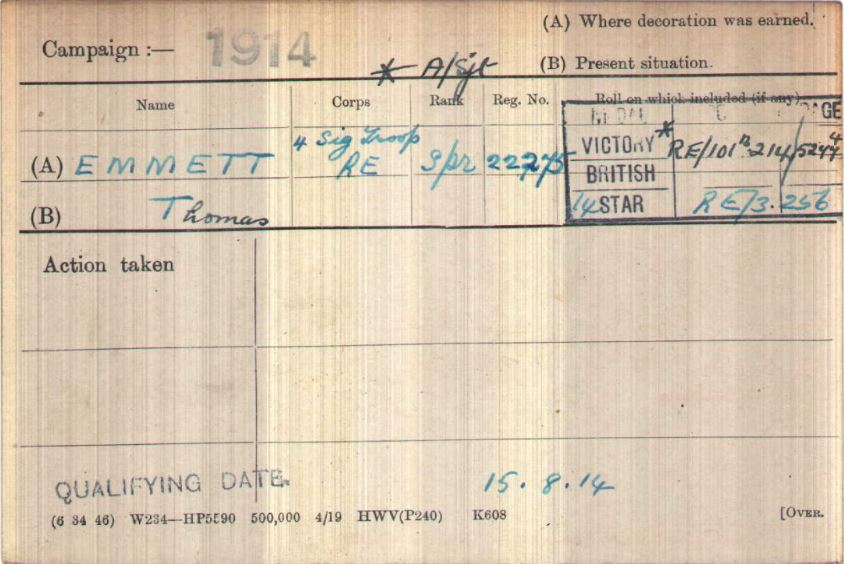 (A) Where decoration was earned.
Campaign :— 1914
* A/Sjt (B) Present situation.
Name Corps Rank Reg. No. Roll on which included (if any)
MEDAL PAGE
4 Sig Troop
(A) EMMETT RE Spr 22275 VICTORY * RE/101 B 214 5244
BRITISH
(B) Thomas 14 STAR RE/3. 256
Action taken
QUALIFYING DATE. 15.8.14
(6 34 46) W234—HP5590 500,000 4/19 HWV(P240) K608 [OVER.